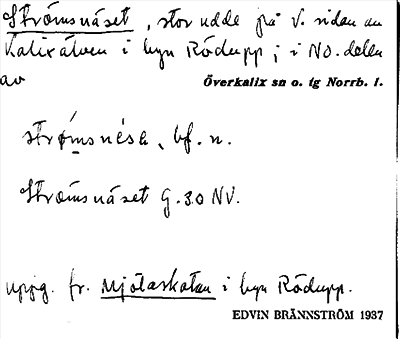 Strömsnäset, stor udde på V. sidan av
Kalixälven i byn Rödupp; i NO. delen
av Överkalix sn o. tg Norrb. l.
strø̀msnésə, bf. n.
Strömsnäset G. 30 NV.
uppg. fr. Mjölaskatan i byn Rödupp.
EDVIN BRÄNNSTRÖM 1937